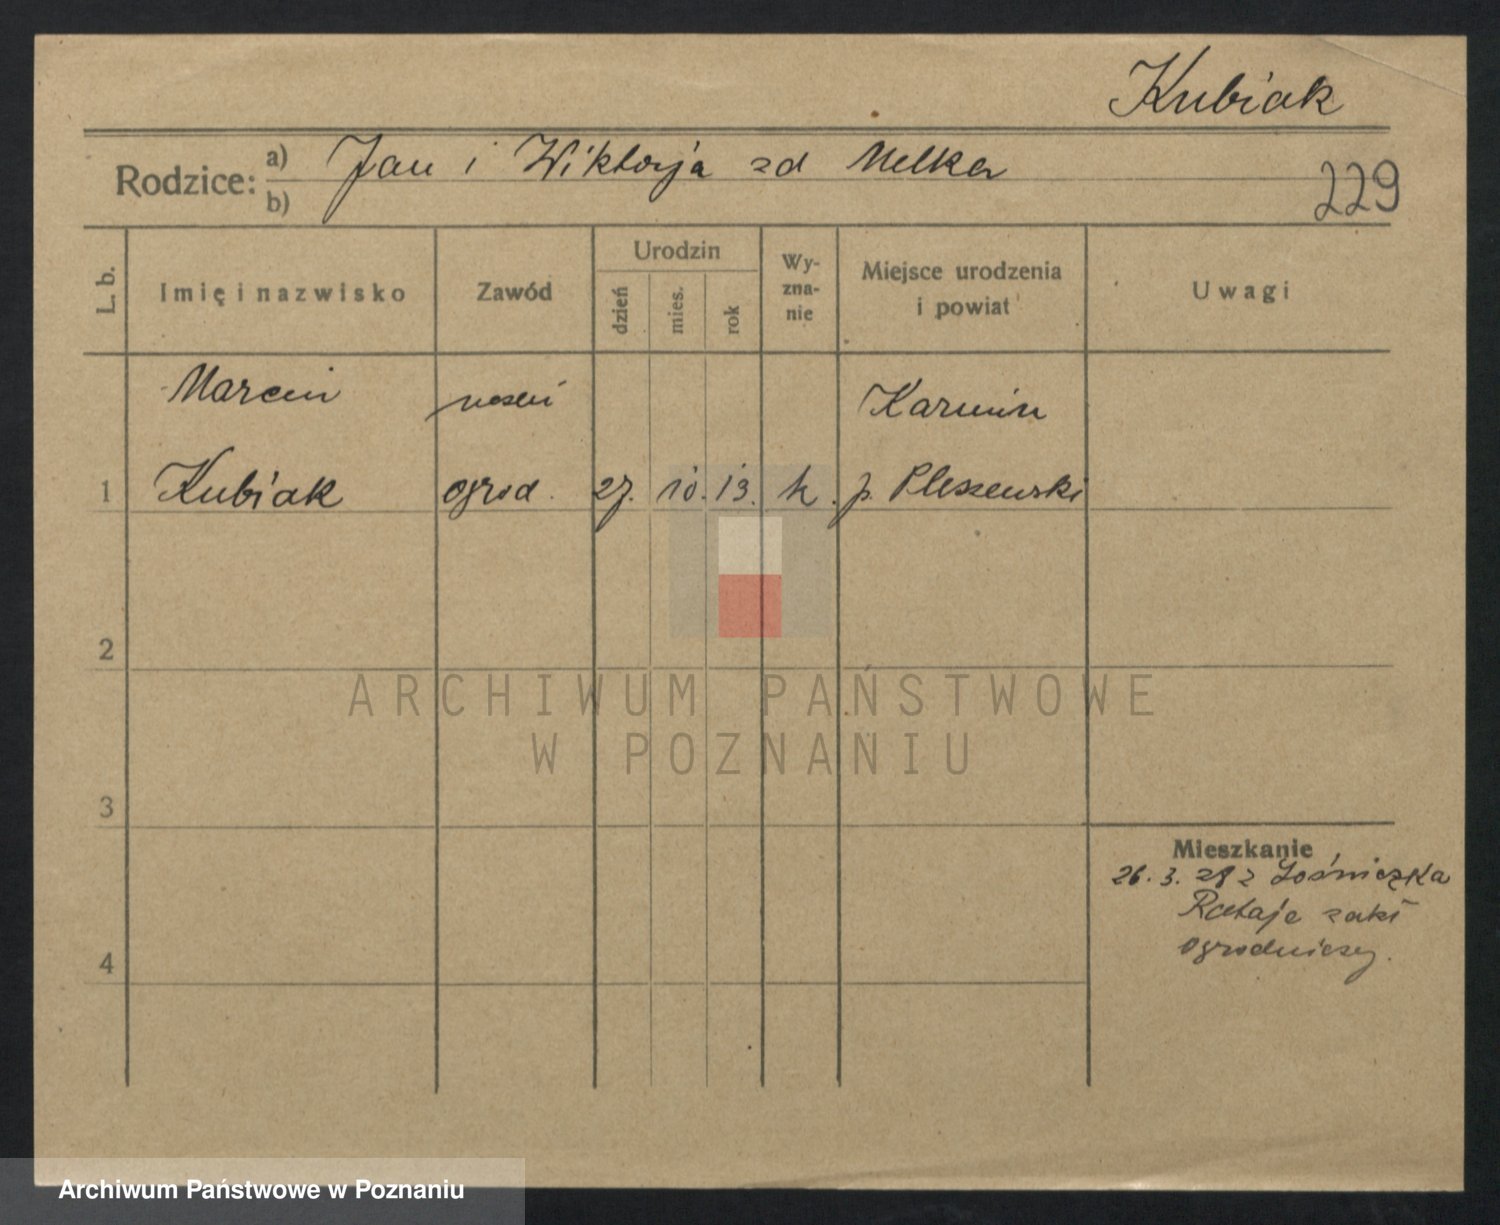 Kubiak
Rodzice: a) Jan i Wiktorja zd Melka
b)
229
L. b.
Imię i nazwisko
Zawód
Urodzin
dzień
mies.
rok
Wy-
zna-
nie
Miejsce urodzenia
i powiat
Uwagi
Marcin uczeń Karmin
1 Kubiak ogrod. 27. 10. 13. k. p. Pleszewski
2
ARCHIWUM PAŃSTWOWE
W POZNANIU
3
Mieszkanie
26. 3. 28 z
Rataje zakł
4
ogrodniczy.
Archiwum Państwowe w Poznaniu